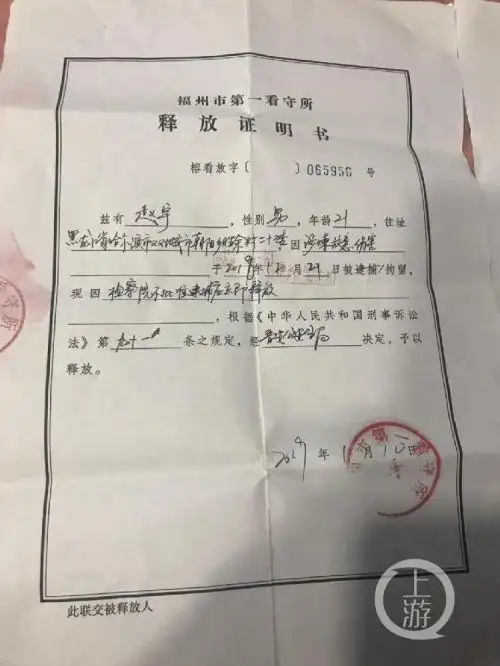 福州市第一看守所
释放证明书
榕看放字〔 〕065956 号
兹有 赵宇 ，性别 男 ，年龄 21 ，住址
黑龙江省哈尔滨市双城市朝阳 村二十 因 涉嫌故意伤害
于2018年12月29日被逮捕/拘留，
现因 检察院不批准逮捕后立即释放
，根据《中华人民共和国刑事诉讼
法》第 九十一 条之规定，经 晋安公安分局 决定，予以
释放。
2019年1月10日
此联交被释放人
上游